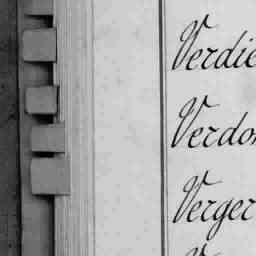 Verdie
Verdon
Verger